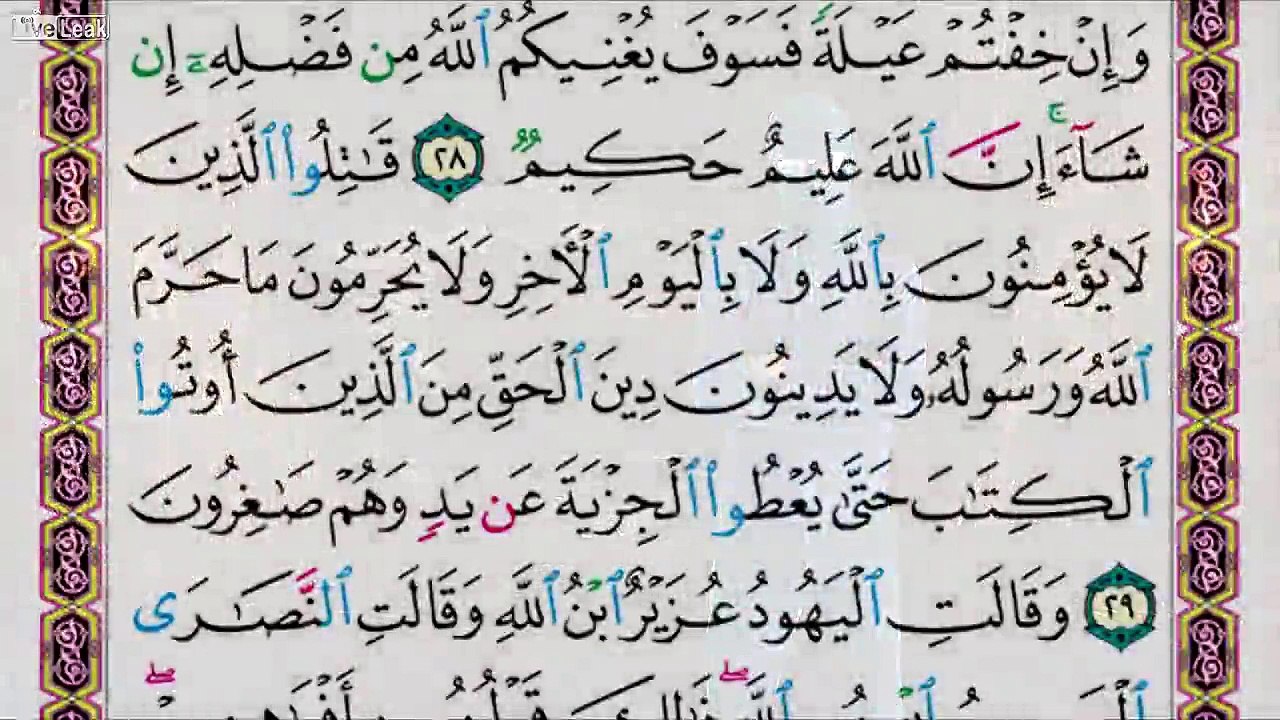 LiveLeak
وَإِنْ خِفْتُمْ عَيْلَةً فَسَوْفَ يُغْنِيكُمُ ٱللَّهُ مِن فَضْلِهِۦٓ إِن
شَآءَ ۚ إِنَّ ٱللَّهَ عَلِيمٌ حَكِيمٌ ٢٨ قَـٰتِلُوا۟ ٱلَّذِينَ
لَا يُؤْمِنُونَ بِٱللَّهِ وَلَا بِٱلْيَوْمِ ٱلْـَٔاخِرِ وَلَا يُحَرِّمُونَ مَا حَرَّمَ
ٱللَّهُ وَرَسُولُهُۥ وَلَا يَدِينُونَ دِينَ ٱلْحَقِّ مِنَ ٱلَّذِينَ أُوتُوا۟
ٱلْكِتَـٰبَ حَتَّىٰ يُعْطُوا۟ ٱلْجِزْيَةَ عَن يَدٍ وَهُمْ صَـٰغِرُونَ
٢٩ وَقَالَتِ ٱلْيَهُودُ عُزَيْرٌ ٱبْنُ ٱللَّهِ وَقَالَتِ ٱلنَّصَـٰرَى